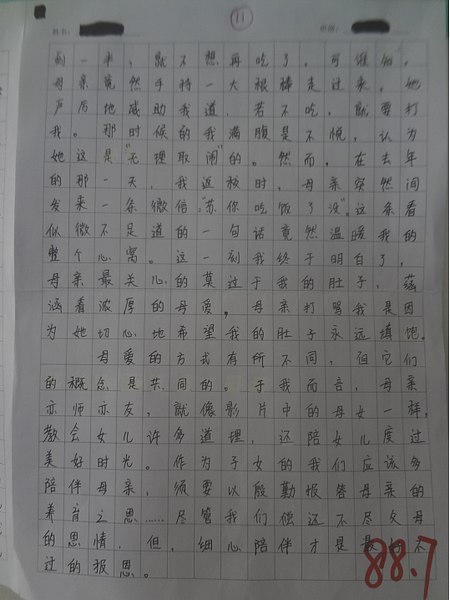 姓名：
11
班别：
到一半，就不想再吃了，可谁知，
母亲竟然手持一大根棒走过来，她
严厉地威胁我道，若不吃，就要打
我。那时候的我满腹是不悦，认为
她这是“无理取闹”的。然而，在去年
的那一天，我返校时，母亲突然间
发来一条微信：“苏你吃饭了没”。这条看
似微不足道的一句话竟然温暖我的
整个心窝。这一刻我终于明白了，
母亲最关心的莫过于我的肚子，蕴
涵着浓厚的母爱。母亲打骂我是因
为她切心地希望我的肚子永远填饱。
母爱的方式有所不同，但它们
的概念是共同的。于我而言，母亲
亦师亦友，就像影片中的母女一样，
教会女儿许多道理，还陪女儿度过
美好时光。作为子女的我们应该多
陪伴母亲，须要以殷勤报答母亲的
养育之恩……尽管我们偿还不尽父母
的恩情，但，细心陪伴才是最不
过的报恩。
88.7